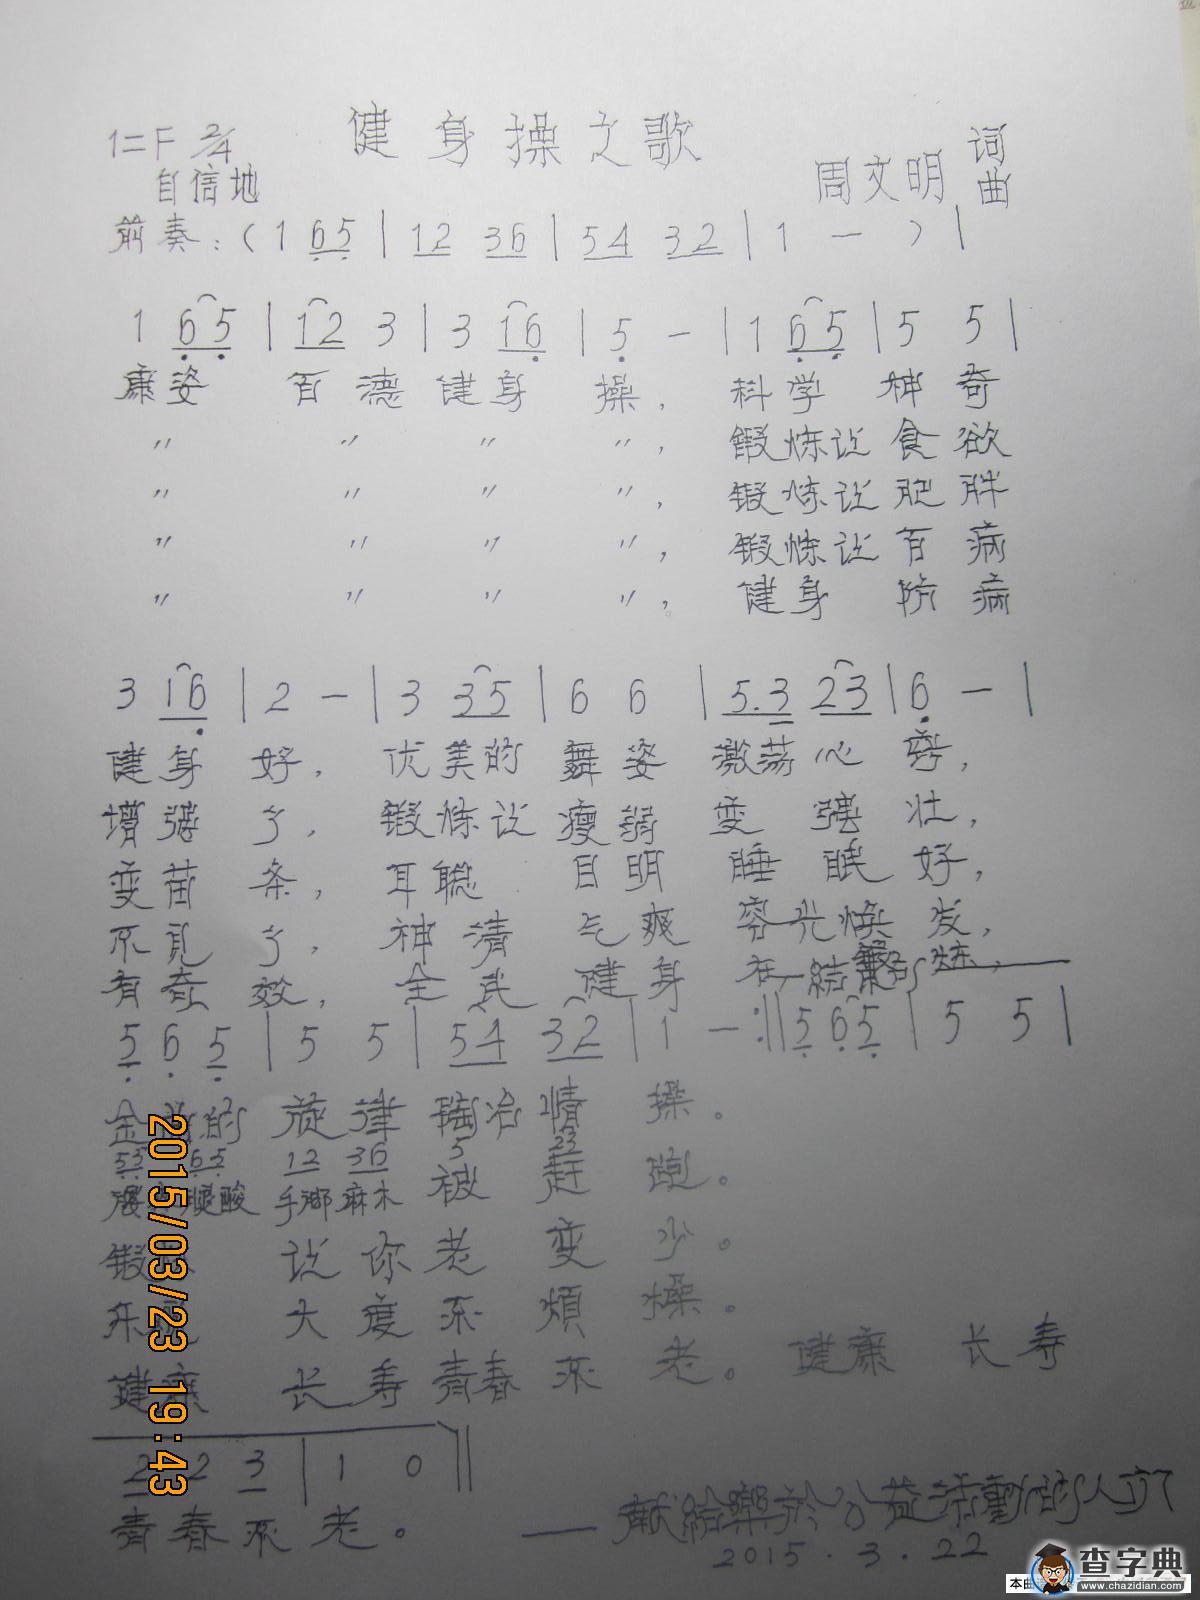 健身操之歌
1=F 2/4
自信地
周文明 词曲
前奏:(1 65 | 12 36 | 54 32 | 1 — ) |
1 65 | 12 3 | 3 16 | 5 — | 1 65 | 5 5 |
康姿 百德健身操, 科学神奇
〃 〃 〃 〃, 锻炼让食欲
〃 〃 〃 〃, 锻炼让肥胖
〃 〃 〃 〃, 锻炼让百病
〃 〃 〃 〃, 健身防病
3 16 | 2 — | 3 35 | 6 6 | 5.3 23 | 6 — |
健身好, 优美的舞姿激荡心
增强了, 锻炼让瘦弱变强壮,
变苗条, 耳聪目明睡眠好,
不见了, 神清气爽容光焕发,
有奇效, 全民健身在
5 6 5 | 5 5 | 54 32 | 1 — :‖ 5 65 | 5 5 |
的旋律陶冶情操。
53 65 12 36 5 23
腿酸手脚麻木被赶跑。
锻 让你老变少。
乐 大度不烦燥。
健康长寿青春不老。 健康长寿
2 2 3 | 1 0 ‖
青春不老。
——献给乐于公益活动的人们
2015.3.22
2015/03/23 19:43
查字典
www.chazidian.com
本曲